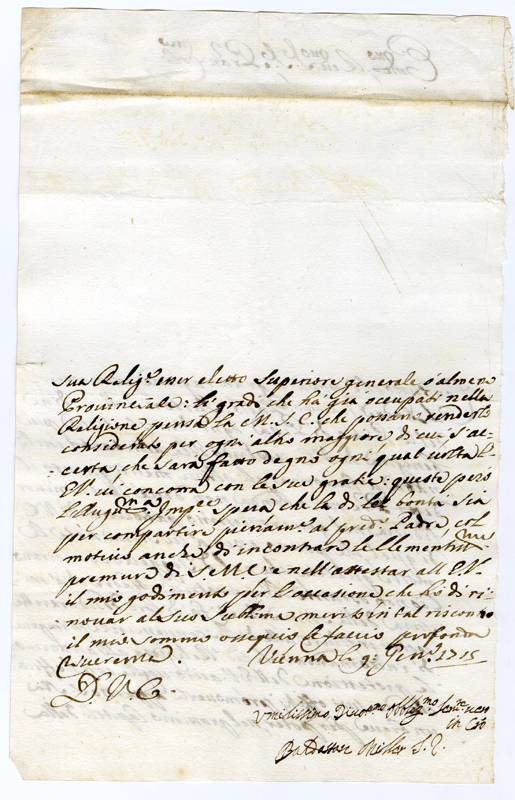 sua Relig.e esser eletto Superiore generale ò almeno
Provinciale: li gradi che hà già occupati nella
Religione pensa la M. S. C. che possano renderlo
considerato per ogni altro maggiore di cui s'ac-
certa che sarà fatto degno ogni qual volta l'
E.V. vi concorra con le sue gratie: queste però
l'Aug.ma Imp.ce spera che la di lei bontà sia
per compartire pienam.te al pred.o Padre, col
motivo anche di incontrare le Clementis.me
premure di S.M.C. e nell'attestar all'E.V.
il mio godimento per l'occasione che hò di ri-
novar al suo sublime merito in tal riscontro
il mio sommo ossequio le faccio profonda
riverenza. Vienna li 9 Gen.o 1715
D. V. E.
Umilissimo Divot.mo Obblig.mo Serv.e vero
in Cto
Baldassar Miller S.J.